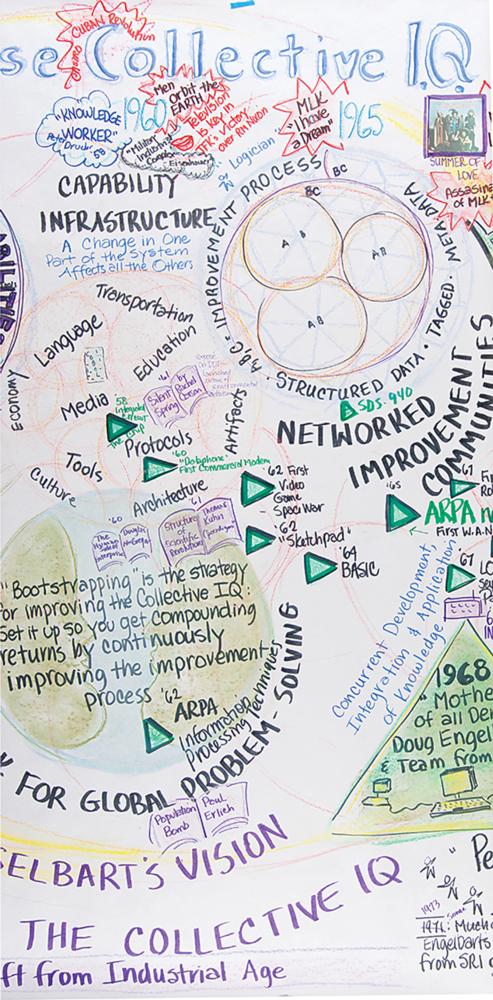 CUBAN Revolution
CASTRO
se Collective I.Q
"KNOWLEDGE
WORKER"
Peter Drucker '58
1960
Men
orbit the
EARTH
Television
is Key in
JFK's Victor
over RM Nixon
"Military
Industrial
Complex"
Eisenhower
MLK
"I have
a Dream"
1965
SUMMER OF
LOVE
Assasina
of MLK
CAPABILITY
INFRASTRUCTURE
A Change in One
Part of the System
Affects all the Others
Logician
A,B,C = IMPROVEMENT PROCESS
BC
BC
A B
A B
A B
STRUCTURED DATA · TAGGED · META DATA
SDS-940
NETWORKED
IMPROVEMENT
COMMUNITIES
Transportation
Language
Education
Economy
Media
58
Integrated
Circuit
The Chip
'61
Silent
Spring
by
Rachel
Carson
Artifacts
Protocols
'60
"Dataphone"
First Commercial Modem
Tools
Culture
Architecture
'60
The
Human
Side of
Enterprise
Douglas
McGregor
'61
Structure
of
Scientific
Revolutions
Thomas
Kuhn
'62 First
Video
Game
Space War
'62
"Sketchpad"
'64
BASIC
'65
ARPA n
FIRST W.A.N
'67
'67
"Bootstrapping" is the strategy
for improving the Collective IQ:
Set it up so you get compounding
returns by continuously
improving the improvement
process
'62
ARPA
Information
Processing Techniques
FOR GLOBAL PROBLEM-SOLVING
Population
Bomb
Paul
Erlich
Concurrent Development,
Integration & Application
of Knowledge
1968
"Mothe
of all De
Doug Engel
Team from
GELBART'S VISION
THE COLLECTIVE IQ
ft from Industrial Age
"Pe
1973
1971: Much
Engelbarts
from SRI